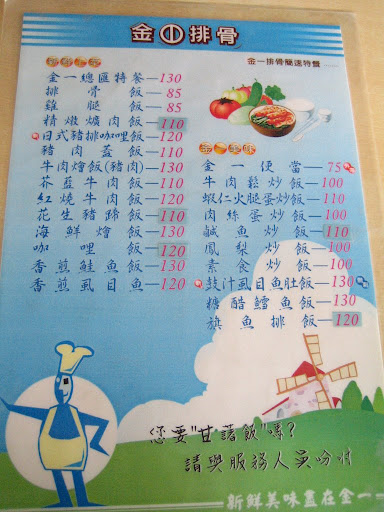 金一排骨
金一排骨簡速特餐
金一總匯特餐—130
排骨飯—85
雞腿飯—85
精燉爌肉飯—110
日式豬排咖哩飯—120
豬肉蓋飯—110
牛肉燴飯(豬肉)—130
芥藍牛肉飯—110
紅燒牛肉飯—120
花生豬蹄飯—110
海鮮燴飯—130
咖哩飯—120
香煎鮭魚飯—130
香煎虱目魚—120
金一美味
金一便當—75
牛肉鬆炒飯—100
蝦仁火腿蛋炒飯—100
肉絲蛋炒飯—100
鹹魚炒飯—110
鳳梨炒飯—100
素食炒飯—100
豉汁虱目魚肚飯—130
糖醋鱈魚飯—130
旗魚排飯—120
您要"甘藷飯"嗎?
請與服務人員吩咐
新鮮美味盡在金一